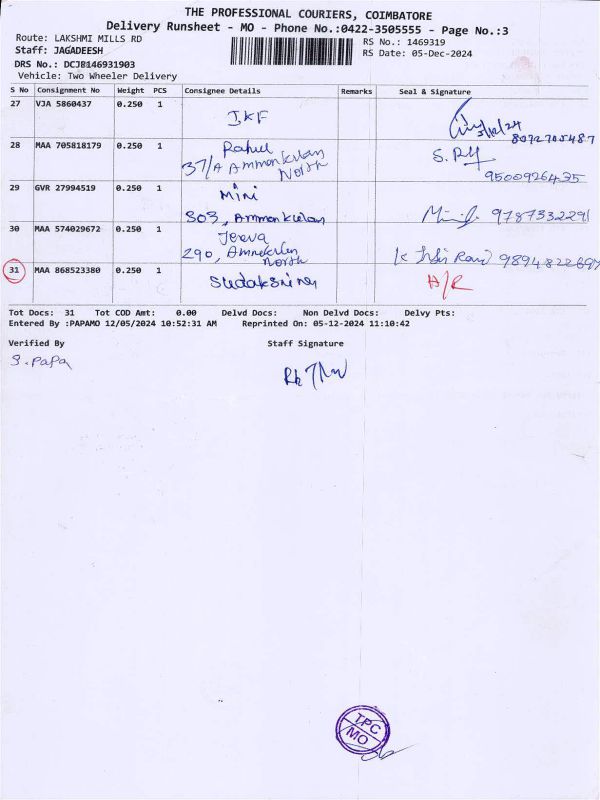 THE PROFESSIONAL COURIERS, COIMBATORE
Delivery Runsheet - MO - Phone No.:0422-3505555 - Page No.:3
Route: LAKSHMI MILLS RD
Staff: JAGADEESH
RS No.: 1469319
RS Date: 05-Dec-2024
DRS No.: DCJB146931903
Vehicle: Two Wheeler Delivery
S No Consignment No Weight PCS Consignee Details Remarks Seal & Signature
27 VJA 5860437 0.250 1 JKF
8072705487
28 MAA 705818179 0.250 1 Rahul
37/A Ammankulam
North
9500926435
29 GVR 27994519 0.250 1 Mini
303, Ammankulam
9787332291
30 MAA 574029672 0.250 1 Jeeva
290,
North
31 MAA 868523380 0.250 1
Tot Docs: 31 Tot COD Amt: 0.00 Delvd Docs: Non Delvd Docs: Delvy Pts:
Entered By :PAPAMO 12/05/2024 10:52:31 AM Reprinted On: 05-12-2024 11:10:42
Verified By Staff Signature
S. Papa
TPC
MO